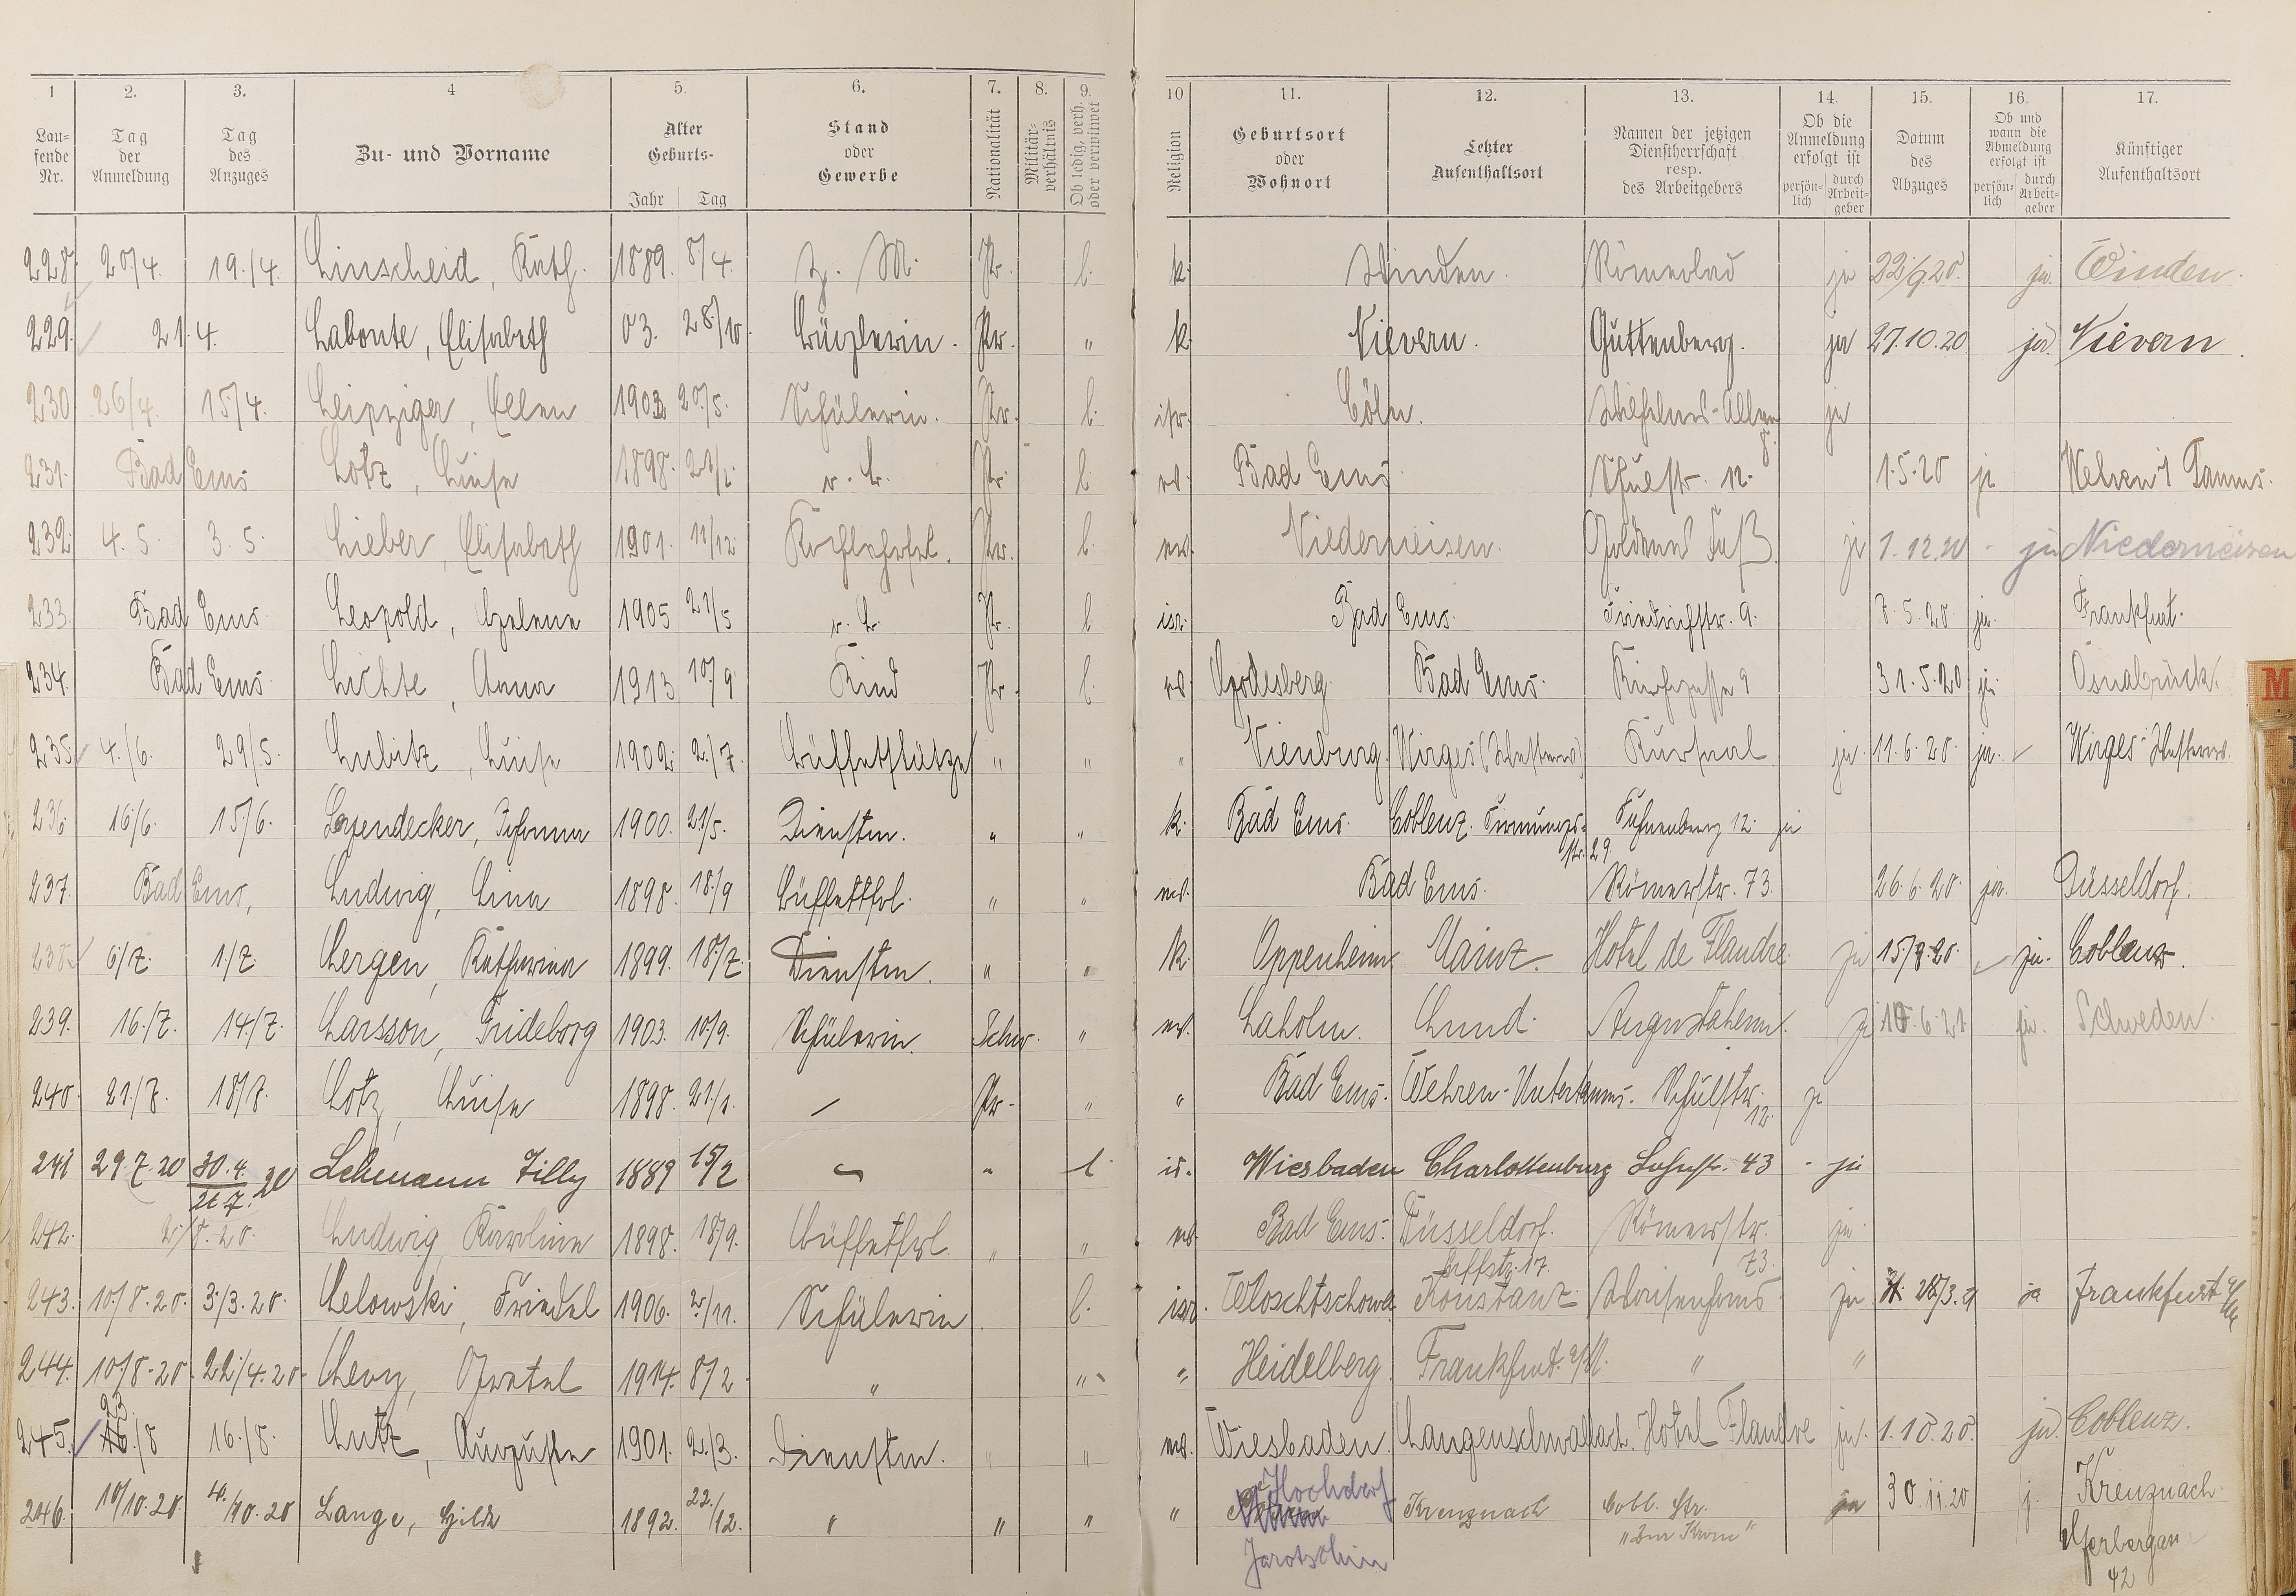 1 2. 3. 4 5. 6. 7. 8. 9. 10 11. 12. 13. 14. 15. 16. 17.
Laufende Nr. | Tag der Anmeldung | Tag des Anzuges | Zu- und Vorname | Alter Geburts- Jahr Tag | Stand oder Gewerbe | Nationalität | Militärverhältnis | Ob ledig, verh. oder verwitwet | Religion | Geburtsort oder Wohnort | Letzter Aufenthaltsort | Namen der jetzigen Dienstherrschaft resp. des Arbeitgebers | Ob die Anmeldung erfolgt ist persönlich durch Arbeitgeber | Datum des Abzuges | Ob und wann die Abmeldung erfolgt ist persönlich durch Arbeitgeber | Künftiger Aufenthaltsort
228. 20/4. 19./4. Linscheid, Käth. 1889. 8/4. Z. M. Pr. l. k. Winden. Römerbad ja 22/9.20. ja. Winden.
229. 21.4. Labonte, Elisabeth 03. 28./10. Pr. " k. Nievern. Guttenberg. ja 27.10.20 ja. Nievern.
230 26/4. 15./4. Leipziger, Ellen 1903 20./5. Schülerin. Pr. l. isr. Cöln. Wilhelms-Allee 8. ja
231. Bad Ems Lotz, Luise 1898. 21/1. o. B. Pr. l. ev. Bad Ems. Schulstr. 12. 1.5.20 ja Wehen i Taunus.
232. 4.5. 3.5. Lieber, Elisabeth 1901. 11/12. Pr. l. ev. Niederneisen. Goldenes Faß. ja 1.12.20 - ja Niederneisen
233. Bad Ems Leopold, Helene 1905 21/5 o. B. Pr. l. isr. Bad Ems. Friedrichstr. 9. 7.5.20. ja. Frankfurt.
234. Bad Ems Lichte, Anna 1913 10./9 Kind Pr. l. ev. Godesberg. Bad Ems. Kirchgasse 9 31.5.20 ja. Osnabrück.
235. 4./6. 29/5. Lubitz, Luise 1902. 2./7. Büffetstütze " " " Vienburg. Wirges (Westerwd) Kursaal. ja. 11.6.20. ja. Wirges Westerwd.
236. 16/6. 15./6. Leyendecker, Johanna 1900. 21/5. Dienstm. " " k. Bad Ems. Coblenz. Firmungs- str. 29. Fahnenberg 12. ja
237. Bad Ems, Ludwig, Lina 1898. 18./9 Büffettfrl. " " ev. Bad Ems. Römerstr. 73. 26.6.20. ja. Düsseldorf.
238. 6/7. 1./7. Lergen, Katharina 1899. 18./7. Dienstm. " " k. Oppenheim Mainz. Hotel de Flandre. ja 15/8.20. ja. Coblenz.
239. 16./7. 14./7. Larsson, Frideborg 1903. 10./9. Schülerin. Schw. " ev. Laholm. Lund. Augustaheim. ja 10.6.21 ja. Schweden.
240. 21./7. 18/7. Lotz, Luise 1898. 21/1. / Pr. " " Bad Ems. Wehren-Untertaunus. Schulstr. 12. ja
241 29.7.20 30.4. 21.7. 20 Lehmann Tilly 1889 15/2 " l. is. Wiesbaden Charlottenburg 43 - ja
242. 2./8.20. Ludwig, Karoline 1898. 18/9. Büffetfrl. " " ev. Bad Ems. Düsseldorf. Erftstr. 17. Römerstr. 73. ja.
243. 10./8.20. 3./3.20. Lelowski, Friedel 1906. 2./11. Schülerin l. isr. Woschtschowa Konstanz. Waisenhaus ja 28/3.21 ja Frankfurt a/M
244. 10./8.20. 22./4.20. Levy, Gretel 1914. 8/2 " " " Heidelberg. Frankfurt. a/M. " "
245. 23 16./8 16./8. Lutz, Auguste 1901. 2./3. Dienstm. " " ev. Wiesbaden. Langenschwalbach. Hotel Flandre ja. 1.10.20. ja. Coblenz.
246. 10/10.20. 4./10.20 Lange, Hilde 1892. 22./12. " " " " Hochdorf Jarotschin Kreuznach Cobl. Str. "Zur Krone" ja 30.11.20 j. Kreuznach. 42
M